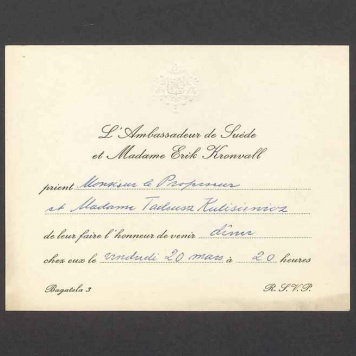 L'Ambassadeur de Suède
et Madame Erik Kronvall
prient Monsieur le Professeur
et Madame Tadeusz Kulisiewicz
de leur faire l'honneur de venir dîner
chez eux le vendredi 20 mars à 20 heures
Bagatela 3 R.S.V.P.